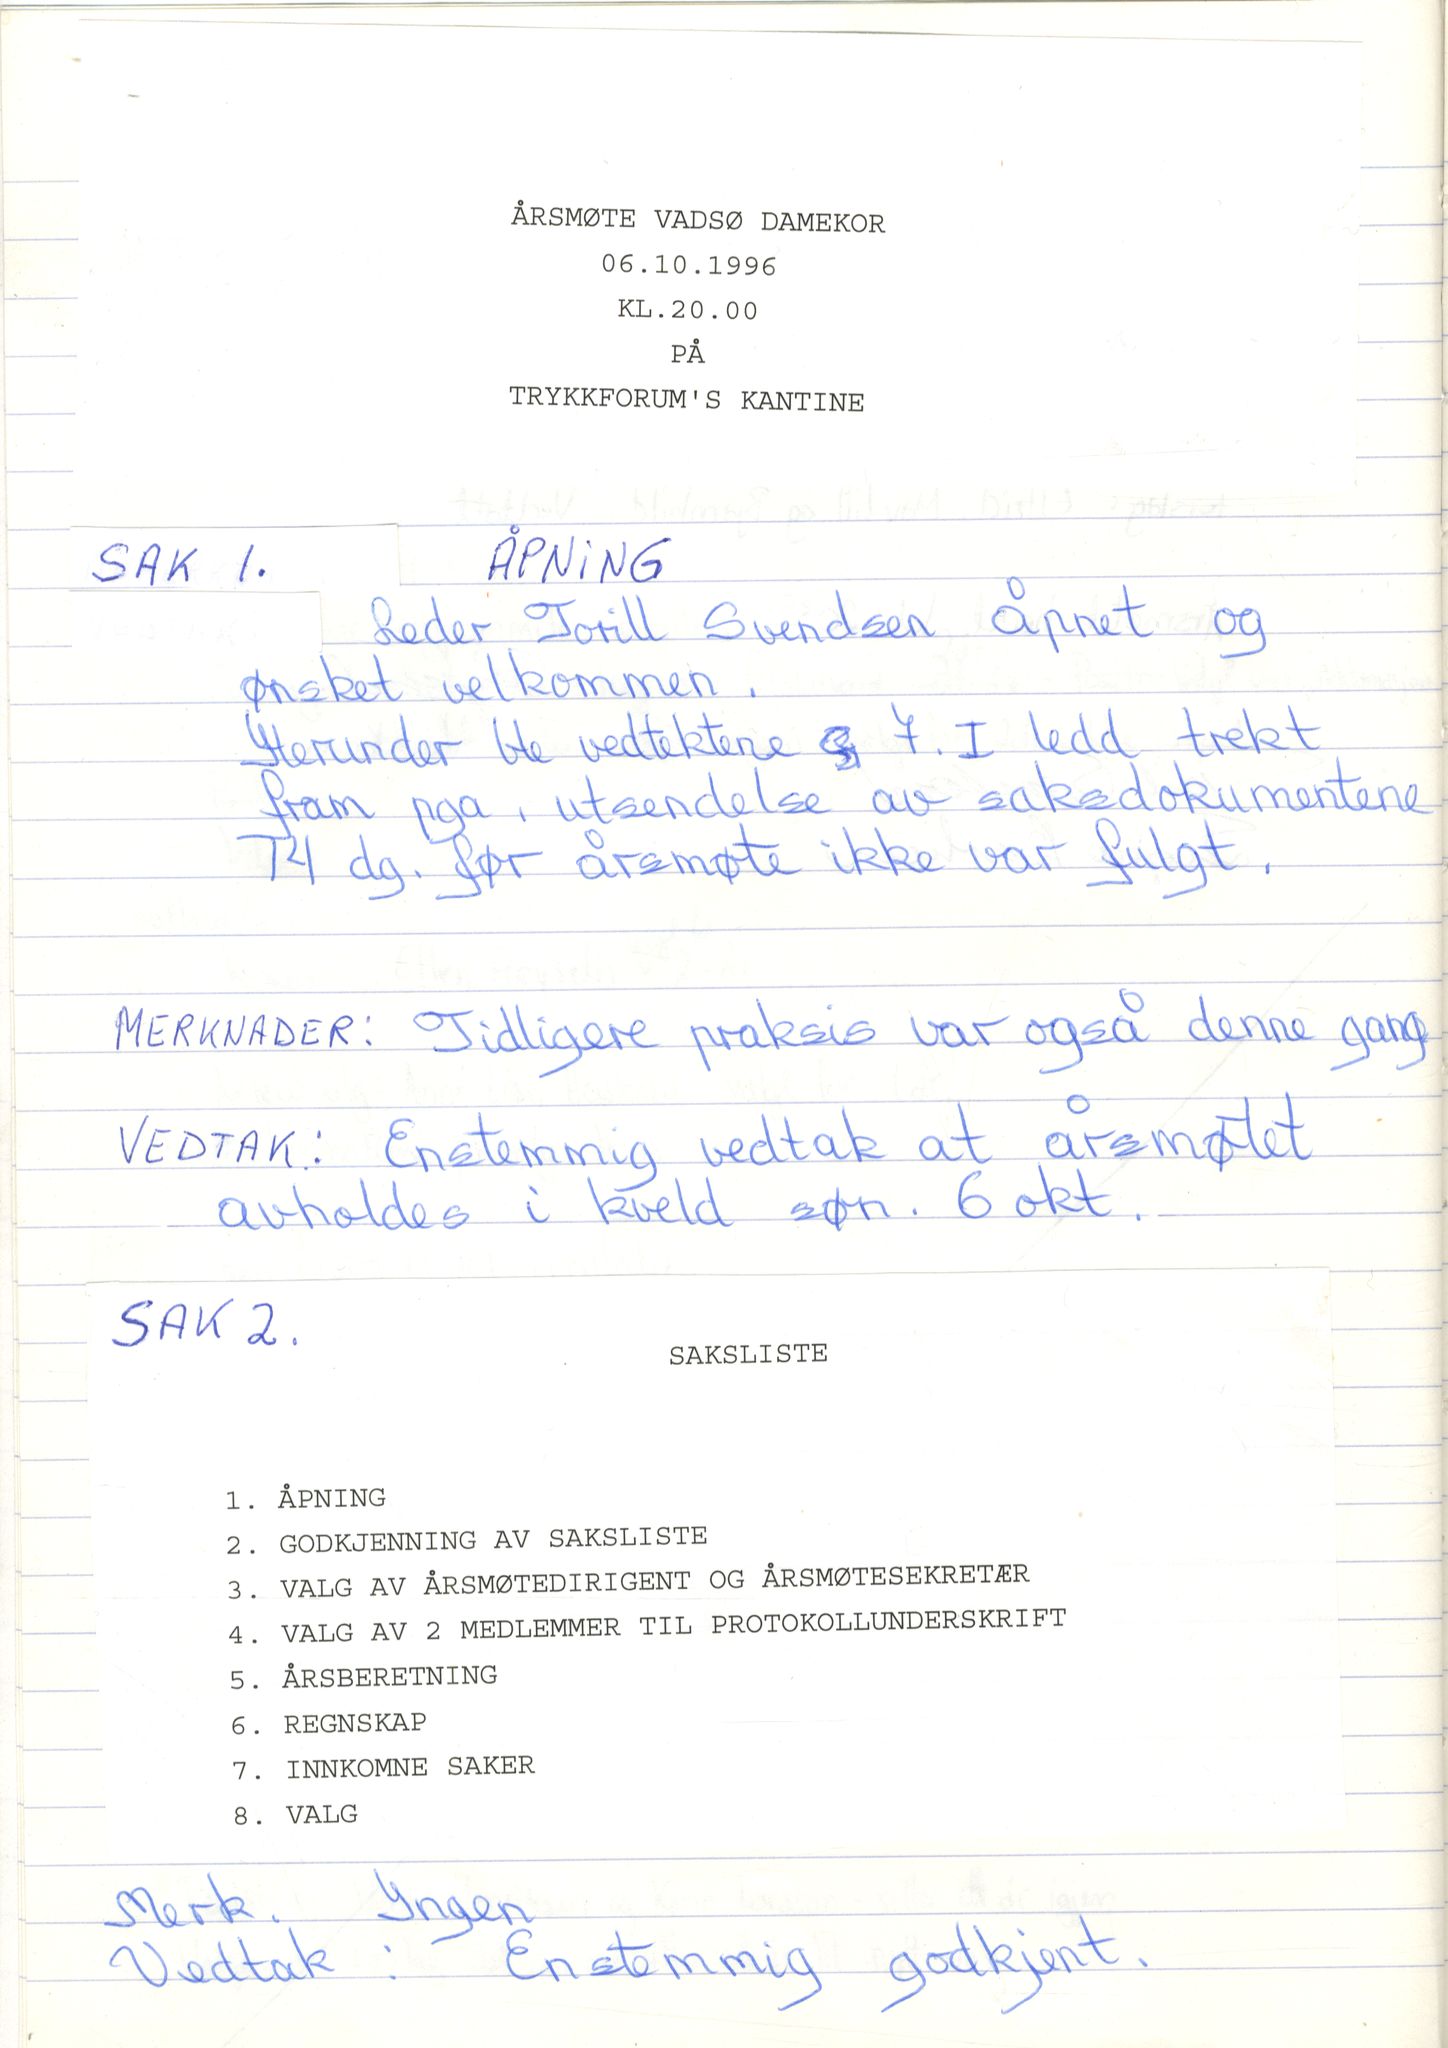 ÅRSMØTE VADSØ DAMEKOR
06.10.1996
KL.20.00
PÅ
TRYKKFORUM'S KANTINE
SAK 1. ÅPNING
Leder Torill Svendsen åpnet og
ønsket velkommen.
Herunder ble vedtektene § 7. I ledd trekt
fram pga. utsendelse av saksdokumentene
14 dg. før årsmøte ikke var fulgt.
MERKNADER: Tidligere praksis var også denne gang
VEDTAK: Enstemmig vedtak at årsmøtet
avholdes i kveld søn. 6 okt.
SAK 2.
SAKSLISTE
1. ÅPNING
2. GODKJENNING AV SAKSLISTE
3. VALG AV ÅRSMØTEDIRIGENT OG ÅRSMØTESEKRETÆR
4. VALG AV 2 MEDLEMMER TIL PROTOKOLLUNDERSKRIFT
5. ÅRSBERETNING
6. REGNSKAP
7. INNKOMNE SAKER
8. VALG
Merk. Ingen
Vedtak: Enstemmig godkjent.